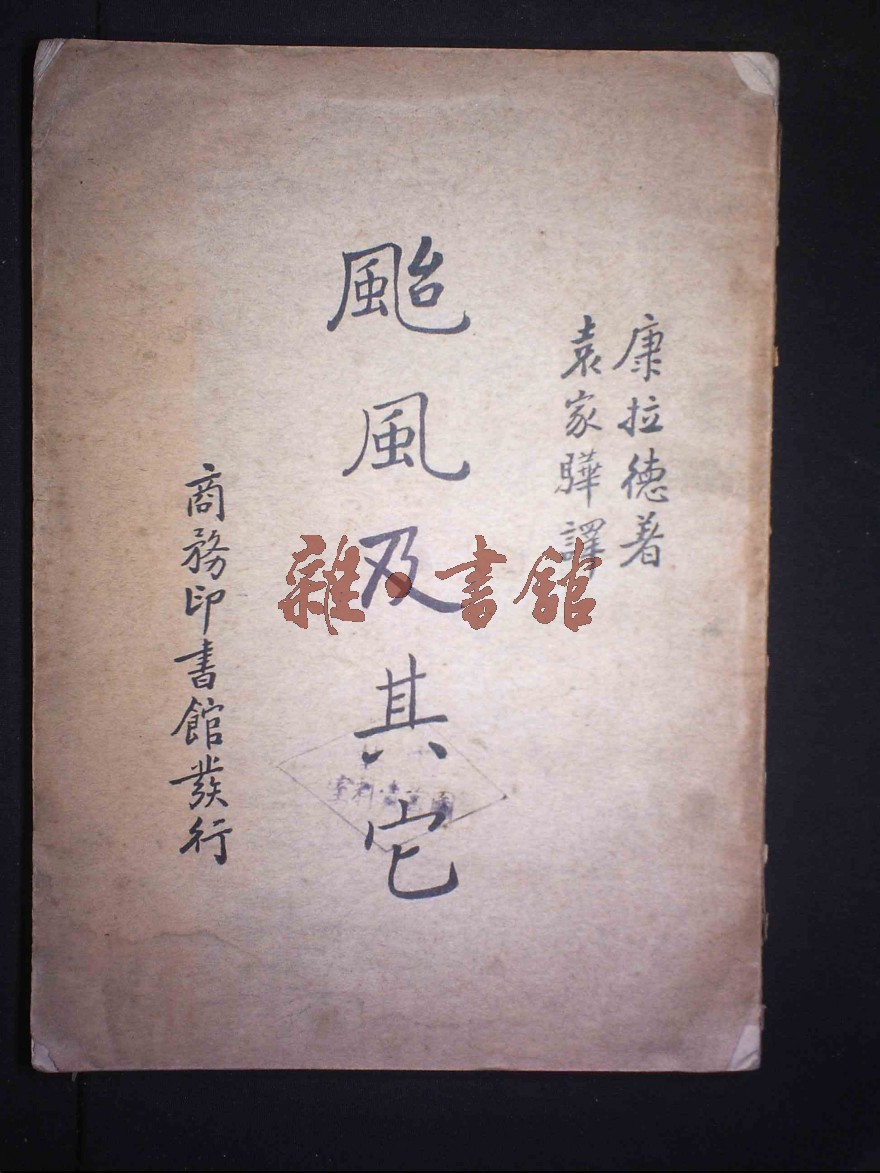 康拉德著
袁家驊譯
颱風及其它
商務印書館發行
雜·書館